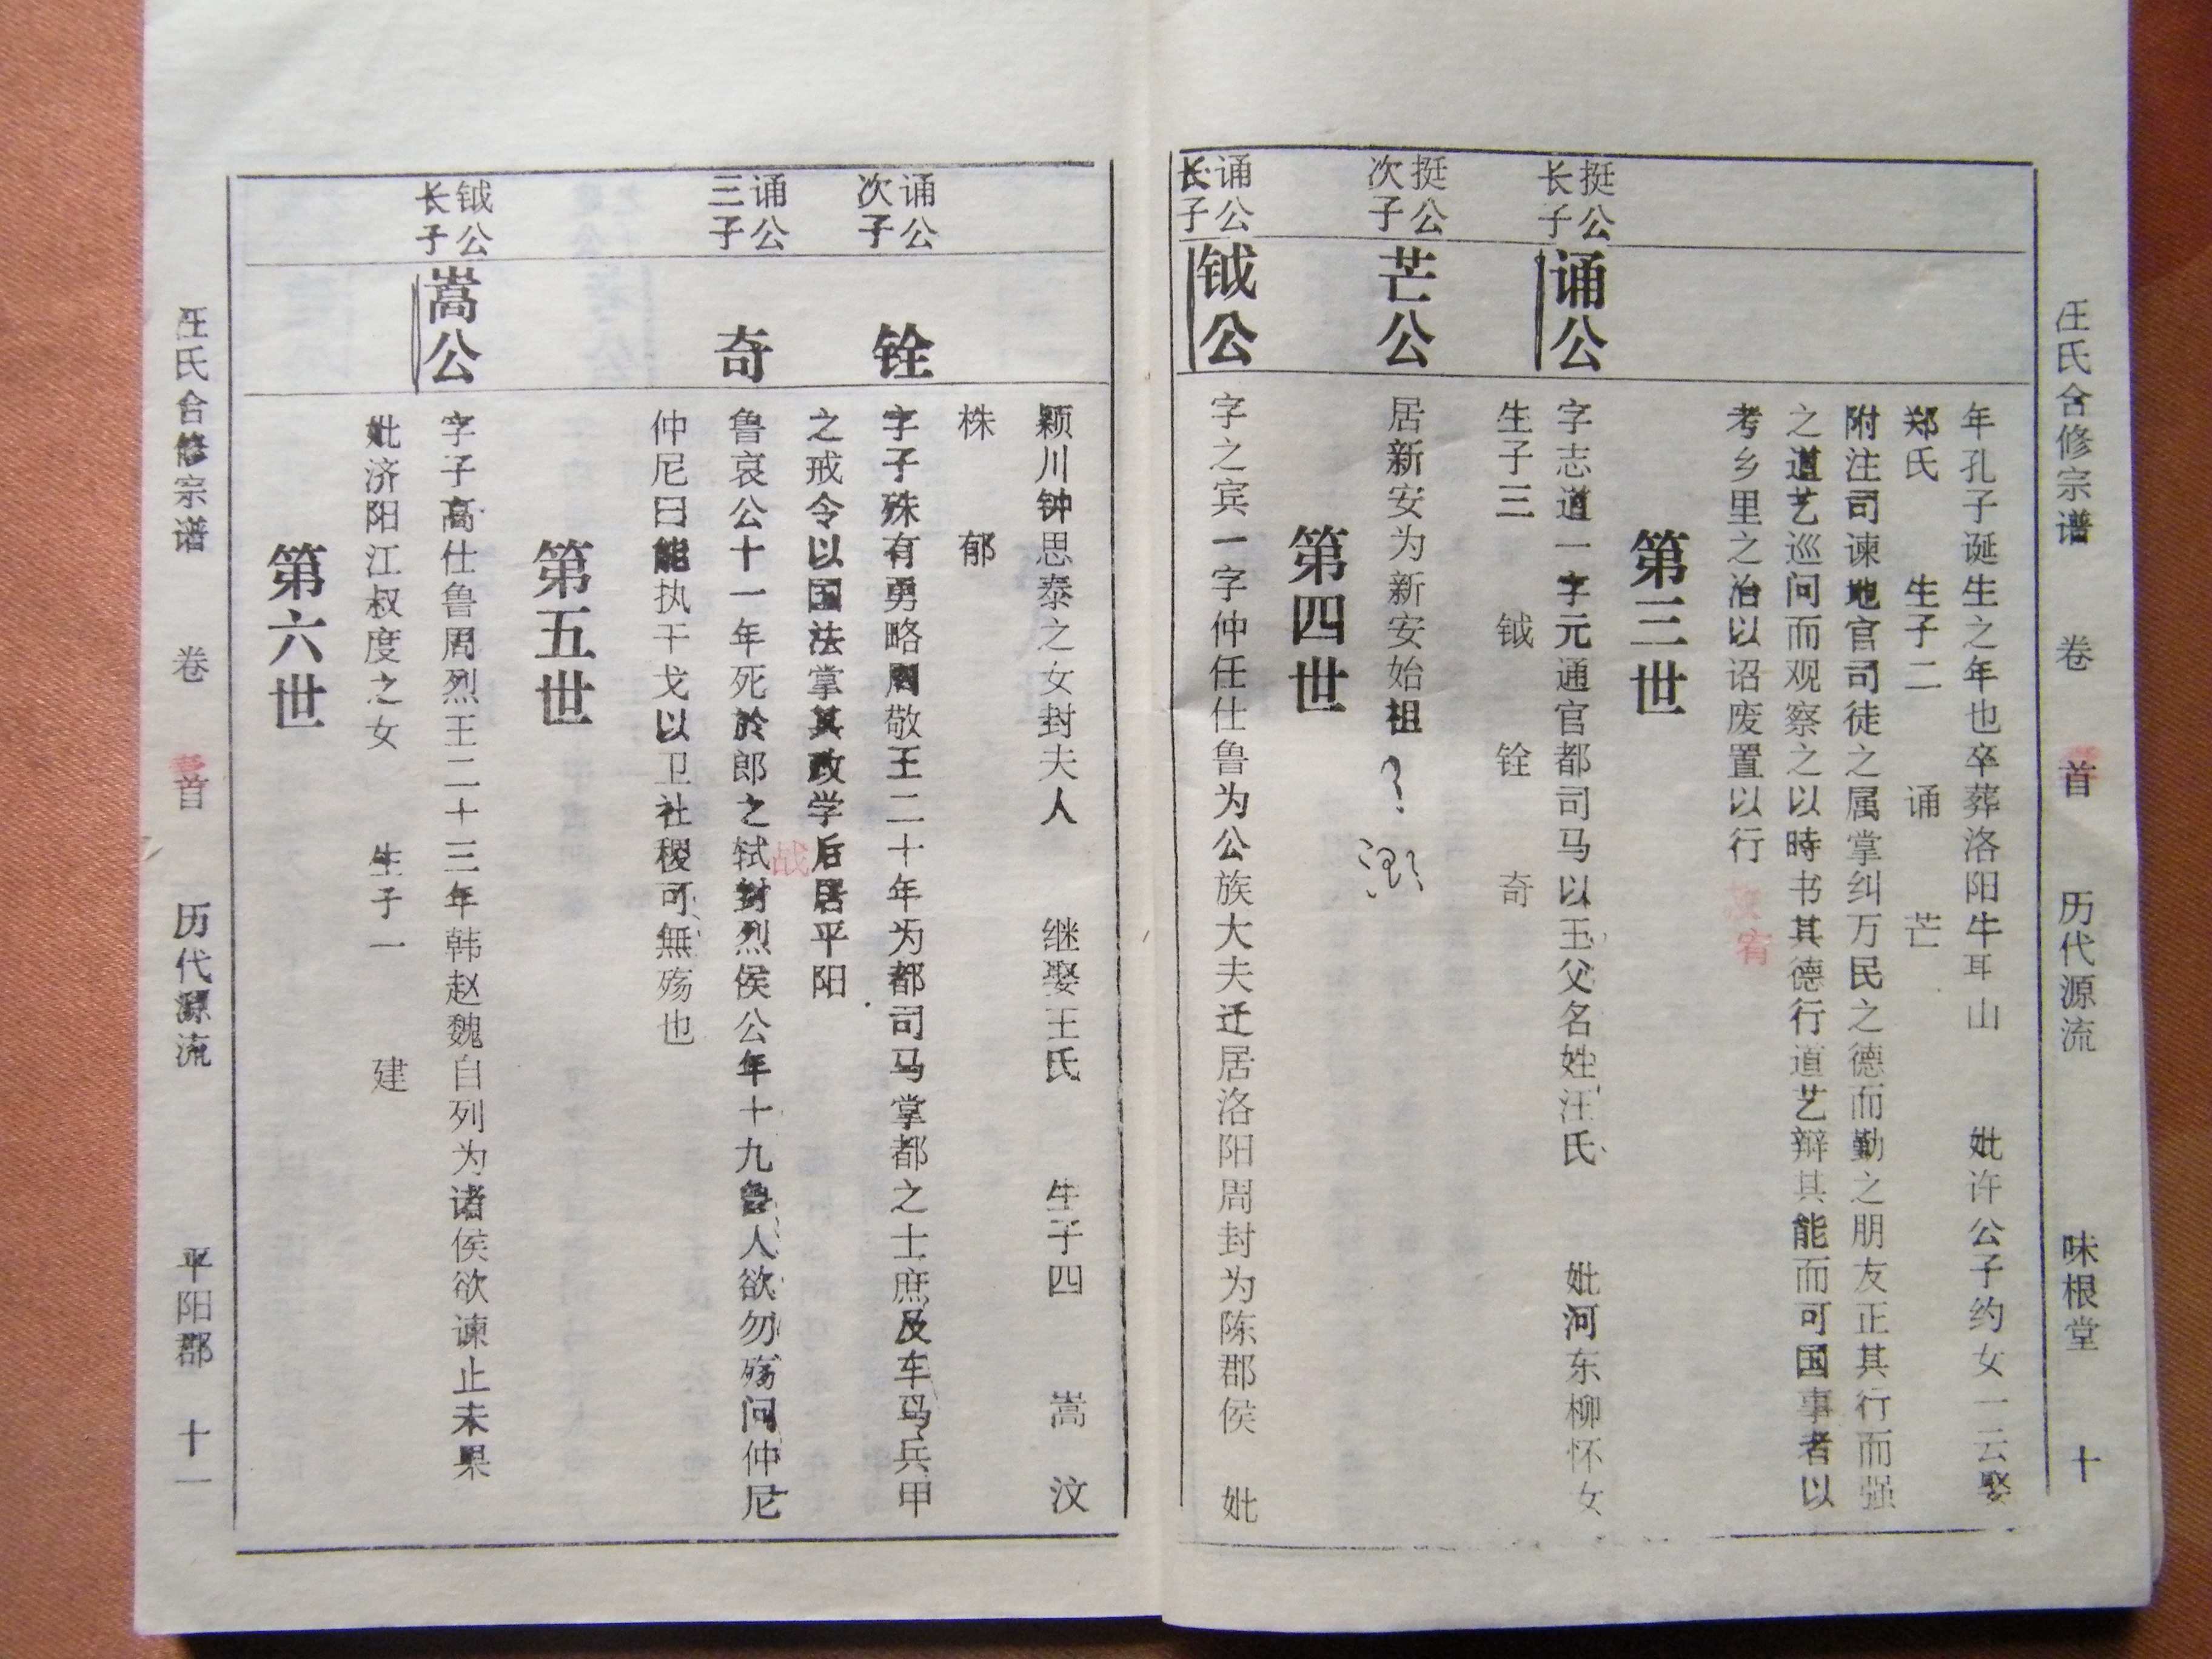 汪氏合修宗谱 卷 首 历代源流 味根堂 十
年孔子诞生之年也卒葬洛阳牛耳山 妣许公子约女一云娶
郑氏 生子二 诵 芒
附注司谏地官司徒之属掌纠万民之德而勤之朋友正其行而强
之道艺巡问而观察之以時书其德行道艺辩其能而可国事者以
考乡里之治以诏废置以行
宥
第三世
挺公
长子
诵公
字志道一字元通官都司马以王父名姓汪氏 妣河东柳怀女
生子三 钺 铨 奇
挺公
次子
芒公
居新安为新安始祖
?
第四世
诵公
长子
钺公
字之宾一字仲任仕鲁为公族大夫迁居洛阳周封为陈郡侯 妣
颖川钟思泰之女封夫人 继娶王氏 生子四 嵩 汶
株 郁
诵公
次子
铨
字子殊有勇略周敬王二十年为都司马掌都之士庶及车马兵甲
之戒令以国法掌其政学后居平阳
战
诵公
三子
奇
鲁哀公十一年死於郎之轼封烈侯公年十九鲁人欲勿殇问仲尼
仲尼曰能执干戈以卫社稷可無殇也
第五世
钺公
长子
嵩公
字子高仕鲁周烈王二十三年韩赵魏自列为诸侯欲谏止未果
妣济阳江叔度之女 生子一 建
第六世
汪氏合修宗谱 卷 首 历代源流 平阳郡 十一